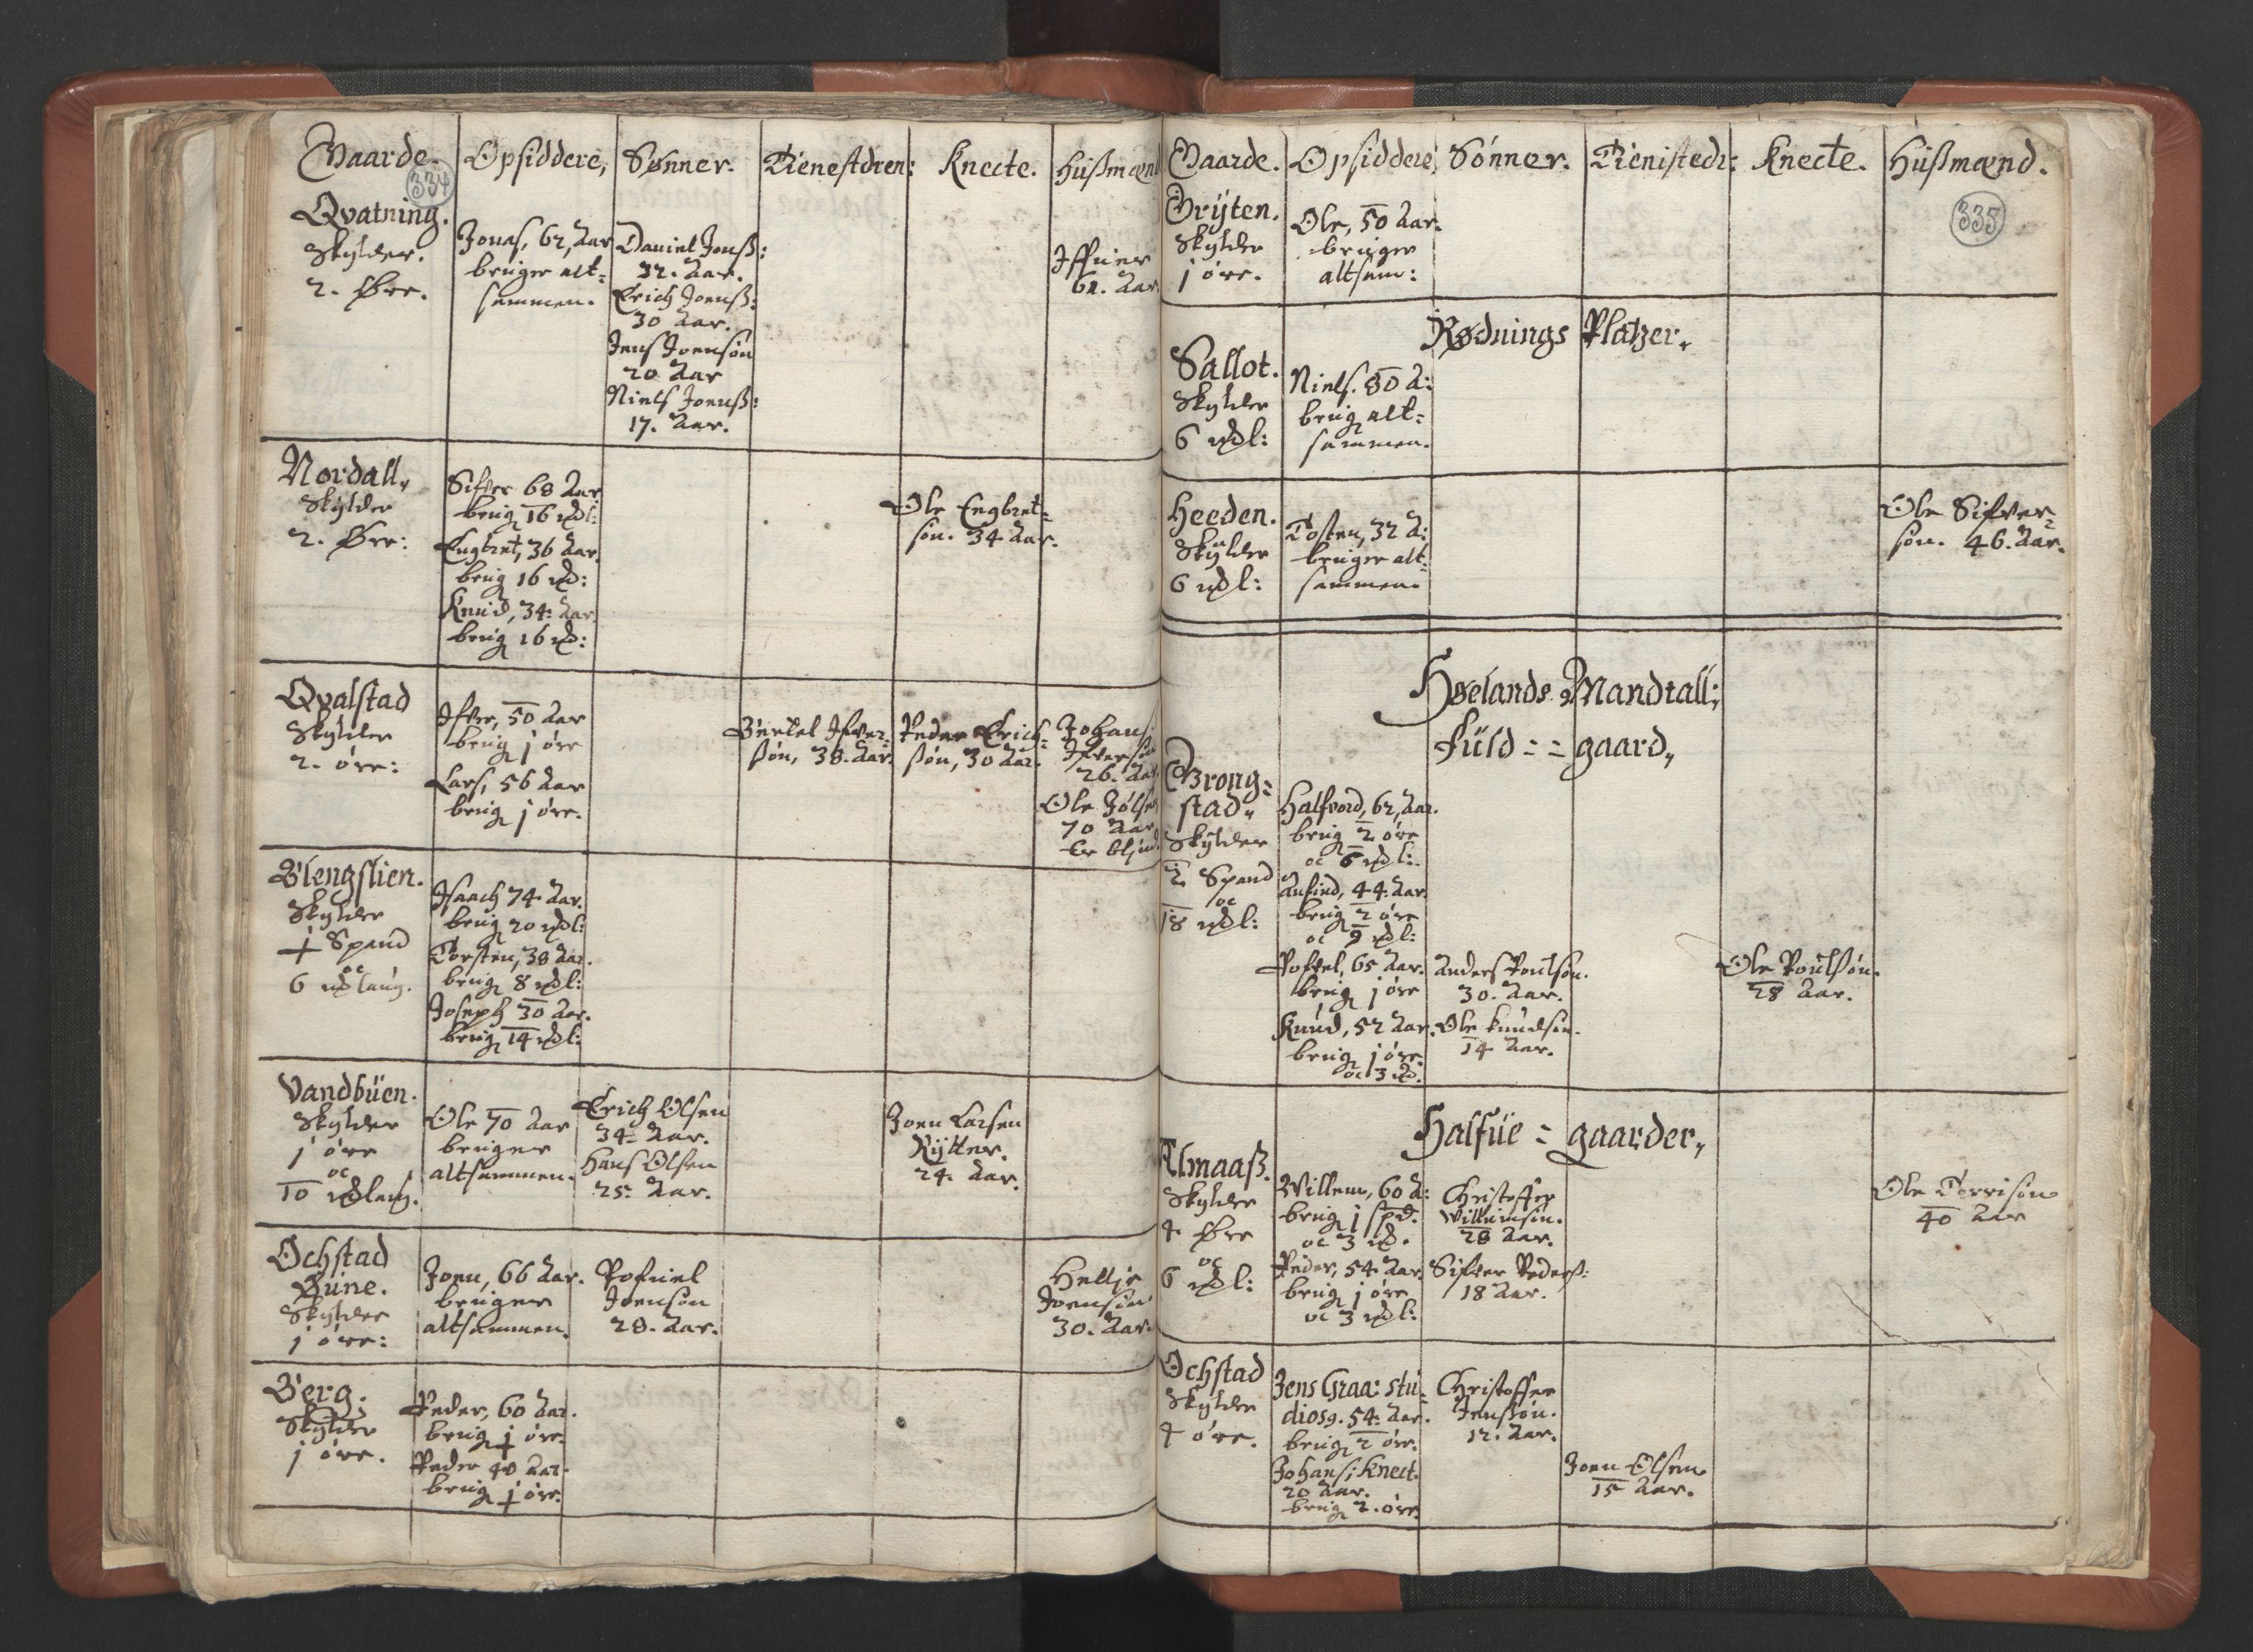 Gaarde.
Opsiddere,
Sønner.
Tienestdren:
Knecte.
Hüßmænd
334
Qvatning.
Skylder.
2. Øre.
Jonas, 62, Aar
bruger alt=
sammen.
Daniel Jonß:
32. Aar.
Erich Joenß:
30 Aar.
Jens Joensøn
20 Aar
Niels Joenß:
17. Aar.
Iffuer
62. Aar
Nordall,
Skylder
2. Øre:
Sifver 68 Aar
brug 16 mdl:
Engbret, 36 Aar.
brug 16 md:
Knud, 34: Aar
brug 16 md:
Ole Engbret=
søn. 34 Aar.
Qvalstad
Skylder
2. øre:
Ifver, 50 Aar
brug j øre
Lars, 56 Aar
brug j øre.
Bertel Ifver=
søn, 38. Aar.
Peder Erich=
søn, 30 Aar.
Johans
Ifversøn
26. Aar
Ole
70 Aar
Er blind
Blengslien.
Skylder
½ Spand
oc
6 mdlaug.
Isaach 74 Aar.
brug 20 mdl:
Torsten, 38 Aar.
brug 8 mdl:
Joseph 30 Aar.
brug 14 mdl:
Vandbüen.
Skylder
j øre
oc
10 mdlaug.
Ole 70 Aar
bruger
altsammen.
Erich Olsen
34. Aar.
Hans Olsen
25. Aar.
Joen Larsen
Rÿtter.
24. Aar.
Ochstad
Büne.
Skylder
j øre:
Joen, 66 Aar.
bruger
altsammen.
Pofuel
Joensøn
28. Aar.
Hellje
Joensøn
30. Aar.
Berg.
Skylder
j øre.
Peder, 60 Aar.
brug ½ øre.
Peder 40 Aar.
brug ½ øre.
Gaarde.
Opsiddere,
Sønner.
Tienistedr:
Knecte.
Hüßmænd.
335
Grÿten.
Skylder
j øre.
Ole, 50 Aar.
bruger
altsam:
Rødnings Platzer,
Sallot.
Skylder
6 mdl:
Niels. 80 A:
brug alt=
sammen.
Heeden.
Skylder
6 mdl:
Tosten, 32 A:
bruger alt=
sammen.
Ole Sifver=
søn. 46. Aar.
Høelands Mandtall;
Füld = = gaard,
Grong=
stad,
Skylder
2 Spand
oc
18 mdl:
Halfvord, 62, Aar.
brug 2 øre
oc 6 mdl:
Anfind, 44 Aar.
brug 2 øre
oc 9 mdl:
Pofvel, 65 Aar.
brug j øre
Knud, 52 Aar.
brug j øre.
oc 3 md.
Anders Poulsøn.
30. Aar.
Ole Knudsøn.
14 Aar.
Ole Poulsøn.
28 Aar.
Halfüe = gaarder,
Almaaß.
Skylder
4 Øre
oc
6 mdl:
Willem, 60 A:
brug j spd.
oc 3 md.
Peder, 54. Aar.
brug j øre
oc 3 mdl:
Christoffer
Willumsøn.
28 Aar.
Sifver Pederß:
18 Aar.
Ole Torrisøn
40 Aar
Ochstad
Skylder
4 øre.
Jens Graa: stu=
diosg. 54. Aar.
brug 2 øre.
Johans; Knect.
20 Aar.
brug 2. øre
Christoffer
Jensøn.
12. Aar.
Joen Olsen
15 Aar.